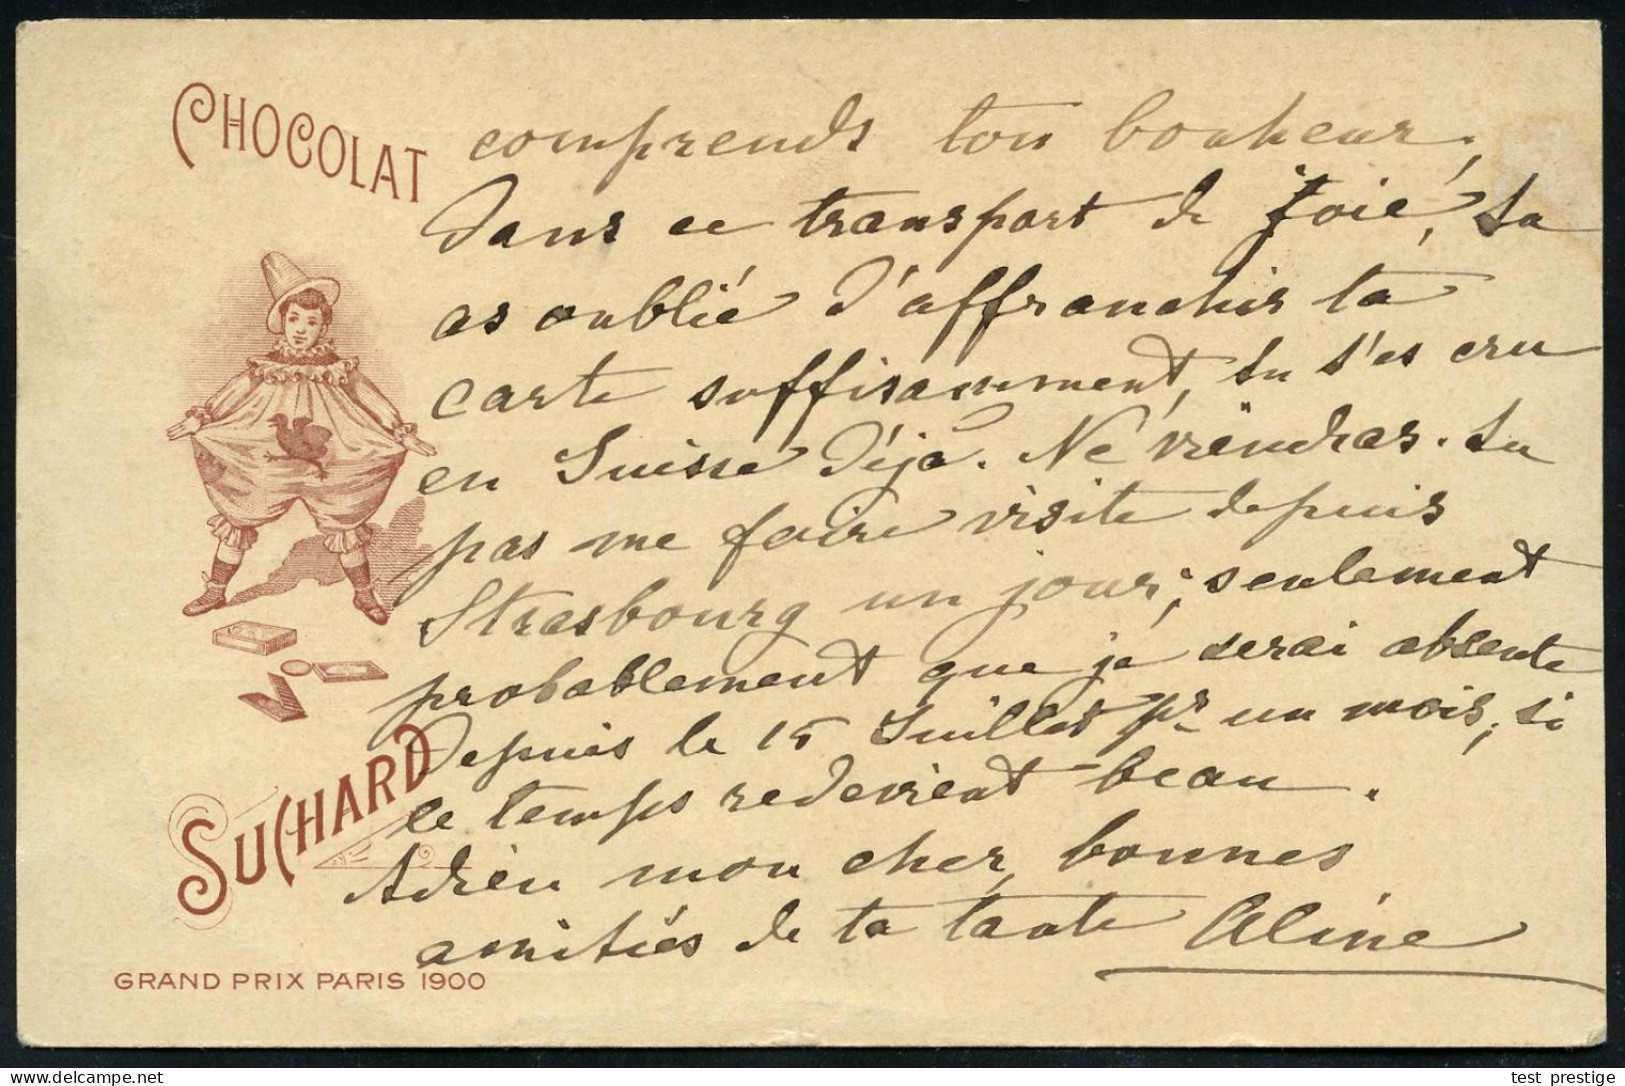 CHOCOLAT
comprends ton bonheur,
Dans ce transport de joie, tu
as oublié d'affranchir ta
carte suffisamment, tu t'es cru
en Suisse déjà. Ne viendras-tu
pas me faire visite depuis
Strasbourg un jour; seulement
probablement que je serai absente
Depuis le 15 Juillet pr un mois, si
le temps redevient beau.
Adieu mon cher, bonnes
amitiés de ta tante Aline
SUCHARD
GRAND PRIX PARIS 1900
test prestige